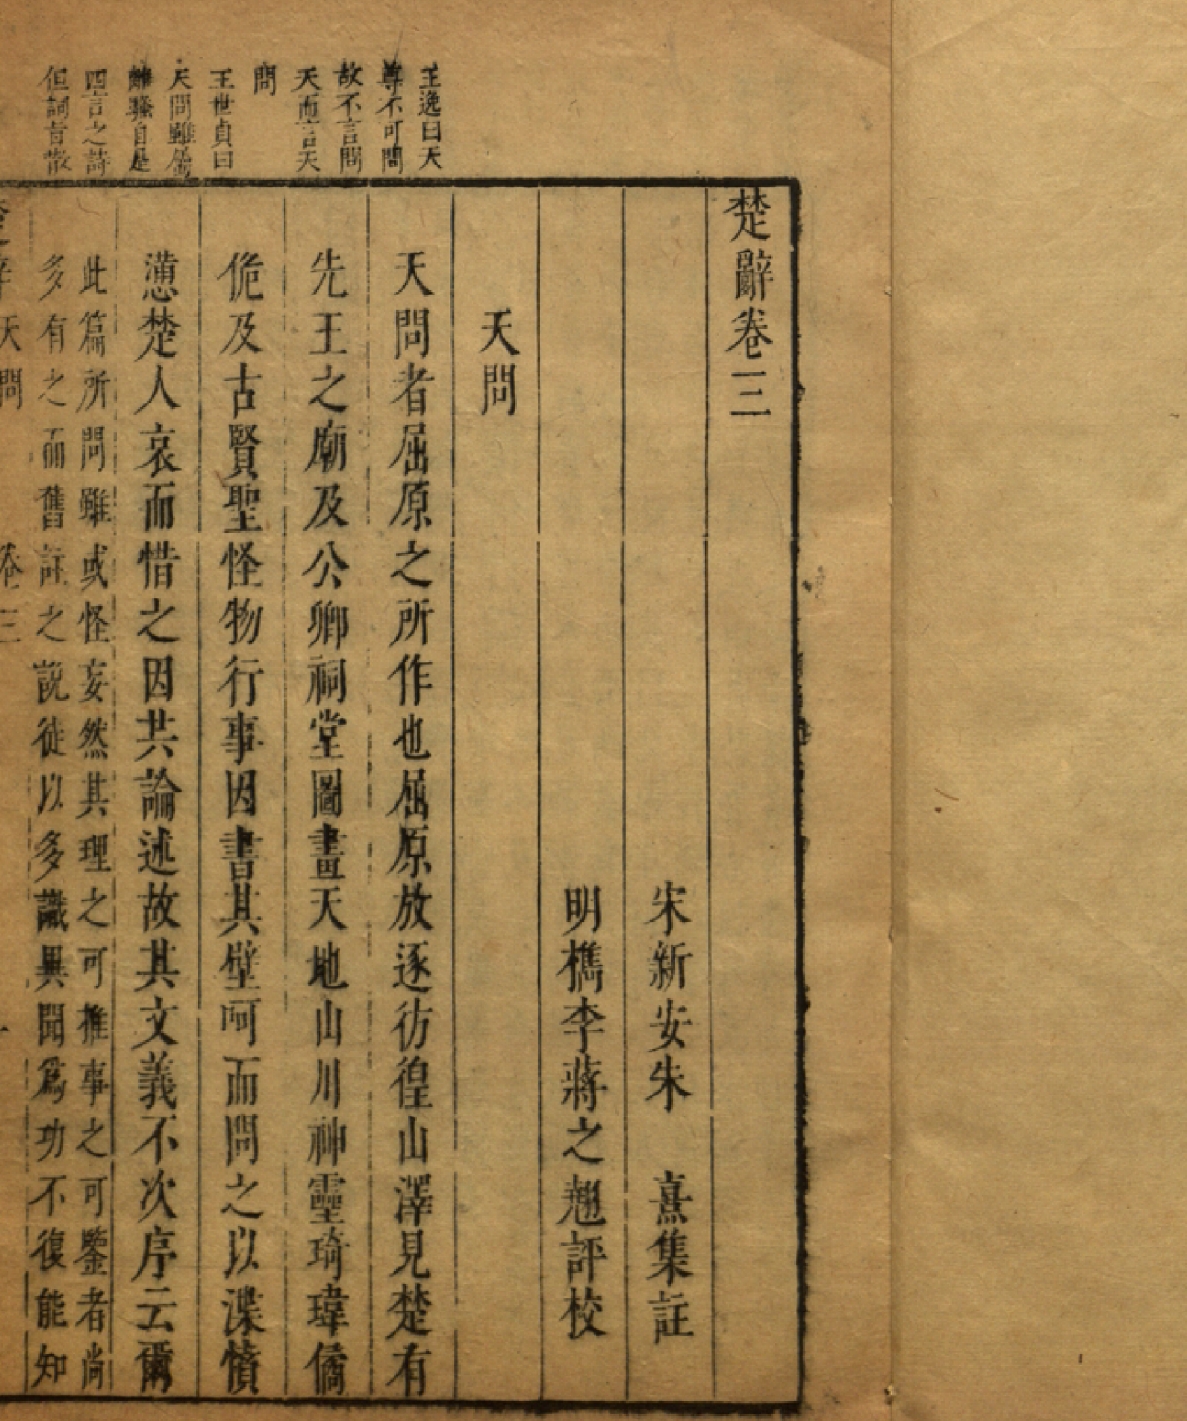 王逸曰天
尊不可問
故不言問
天而言天
問
王世貞曰
天問雖屬
離騷自是
四言之詩
但詞旨散
楚辭卷三
宋新安朱　熹集註
明檇李蔣之翹評校
天問
天問者屈原之所作也屈原放逐彷徨山澤見楚有
先王之廟及公卿祠堂圖畫天地山川神靈琦瑋僑
佹及古賢聖怪物行事因書其壁呵而問之以渫憤
懣楚人哀而惜之因共論述故其文義不次序云爾
此篇所問雖或怪妄然其理之可推事之可鑒者尚
多有之而舊註之說徒以多識異聞為功不復能知
楚辭天問　卷三